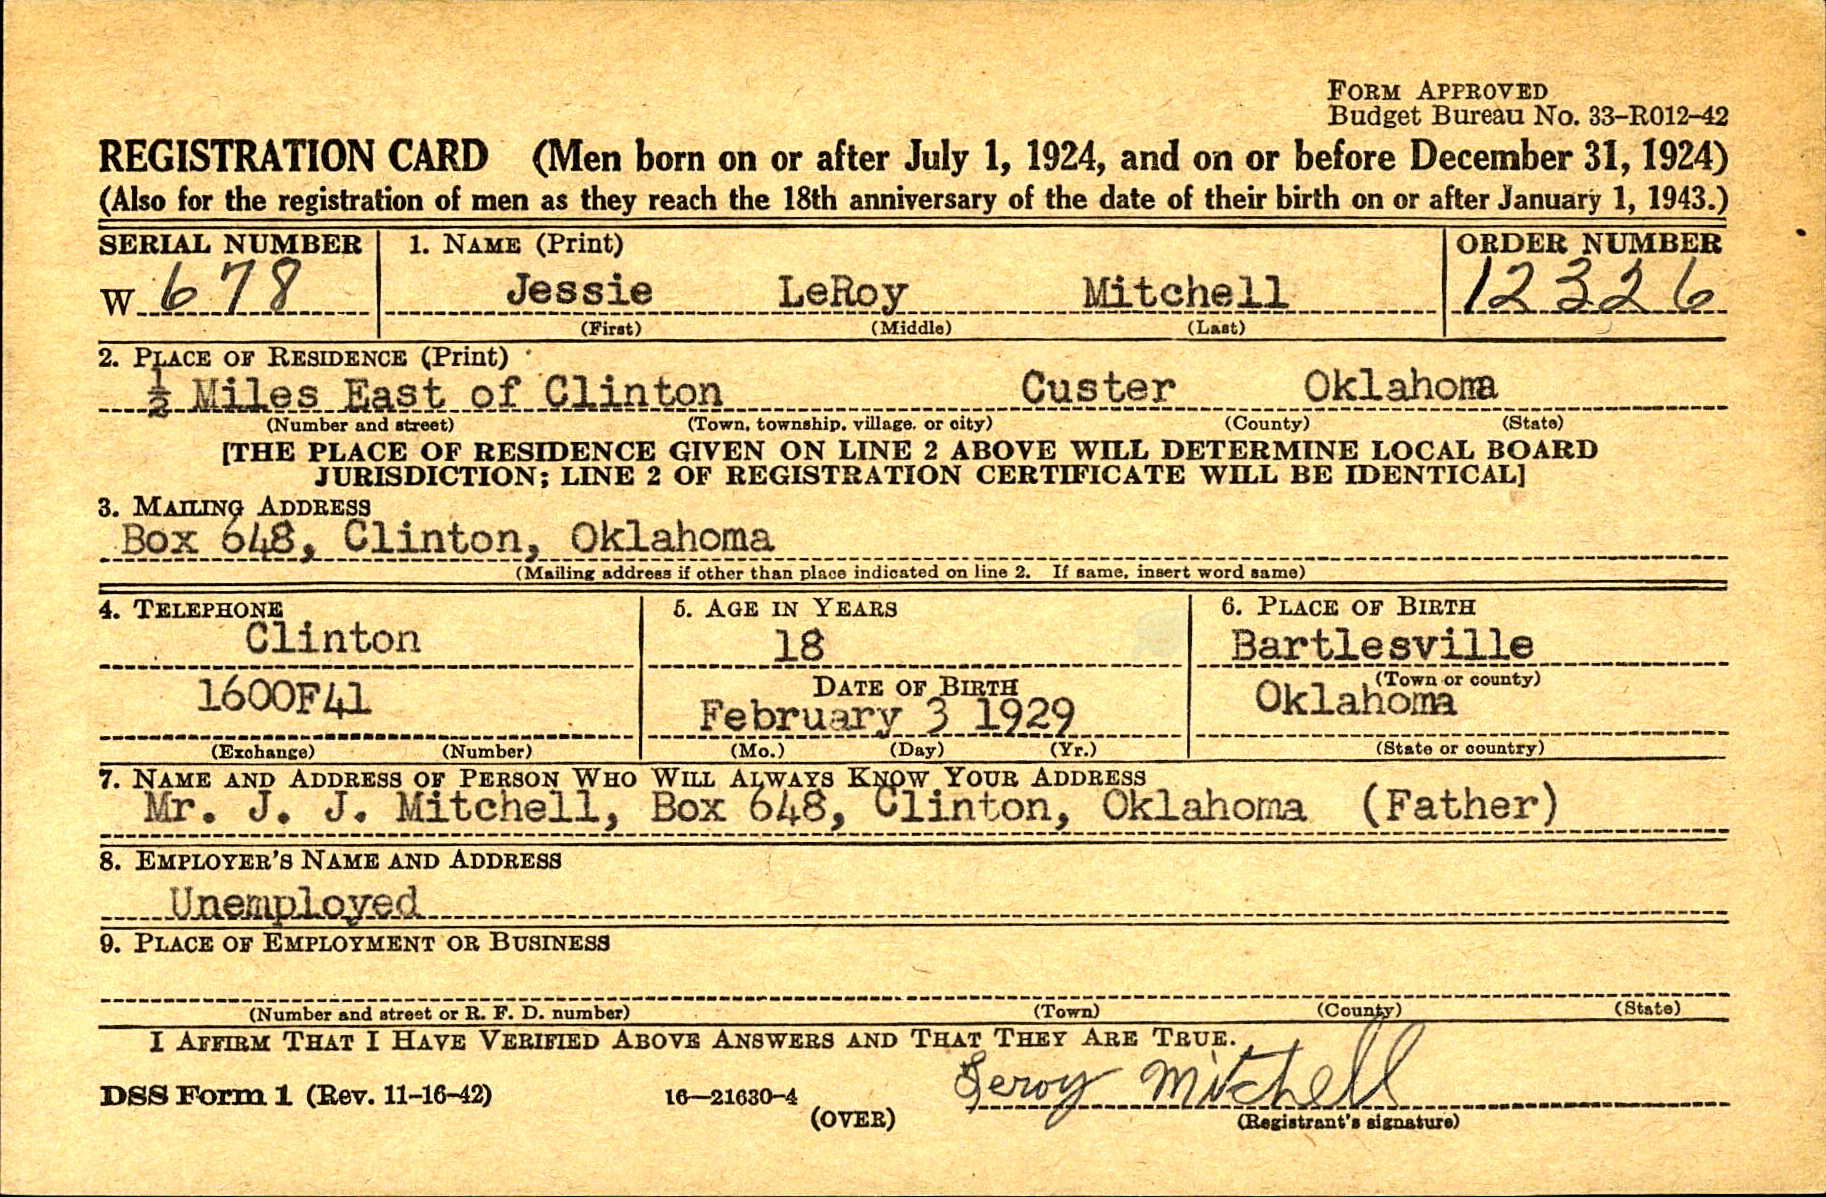 FORM APPROVED
Budget Bureau No. 33-R012-42
REGISTRATION CARD (Men born on or after July 1, 1924, and on or before December 31, 1924)
(Also for the registration of men as they reach the 18th anniversary of the date of their birth on or after January 1, 1943.)
SERIAL NUMBER 1. NAME (Print) ORDER NUMBER
W 678 Jessie LeRoy Mitchell 12326
(First) (Middle) (Last)
2. PLACE OF RESIDENCE (Print)
½ Miles East of Clinton Custer Oklahoma
(Number and street) (Town, township, village, or city) (County) (State)
[THE PLACE OF RESIDENCE GIVEN ON LINE 2 ABOVE WILL DETERMINE LOCAL BOARD
JURISDICTION; LINE 2 OF REGISTRATION CERTIFICATE WILL BE IDENTICAL]
3. MAILING ADDRESS
Box 648, Clinton, Oklahoma
(Mailing address if other than place indicated on line 2. If same, insert word same)
4. TELEPHONE 5. AGE IN YEARS 6. PLACE OF BIRTH
Clinton 18 Bartlesville
DATE OF BIRTH (Town or county)
1600F41 February 3 1929 Oklahoma
(Exchange) (Number) (Mo.) (Day) (Yr.) (State or country)
7. NAME AND ADDRESS OF PERSON WHO WILL ALWAYS KNOW YOUR ADDRESS
Mr. J. J. Mitchell, Box 648, Clinton, Oklahoma (Father)
8. EMPLOYER'S NAME AND ADDRESS
Unemployed
9. PLACE OF EMPLOYMENT OR BUSINESS
(Number and street or R. F. D. number) (Town) (County) (State)
I AFFIRM THAT I HAVE VERIFIED ABOVE ANSWERS AND THAT THEY ARE TRUE.
DSS Form 1 (Rev. 11-16-42) 16—21630-4 Leroy Mitchell
(OVER) (Registrant's signature)